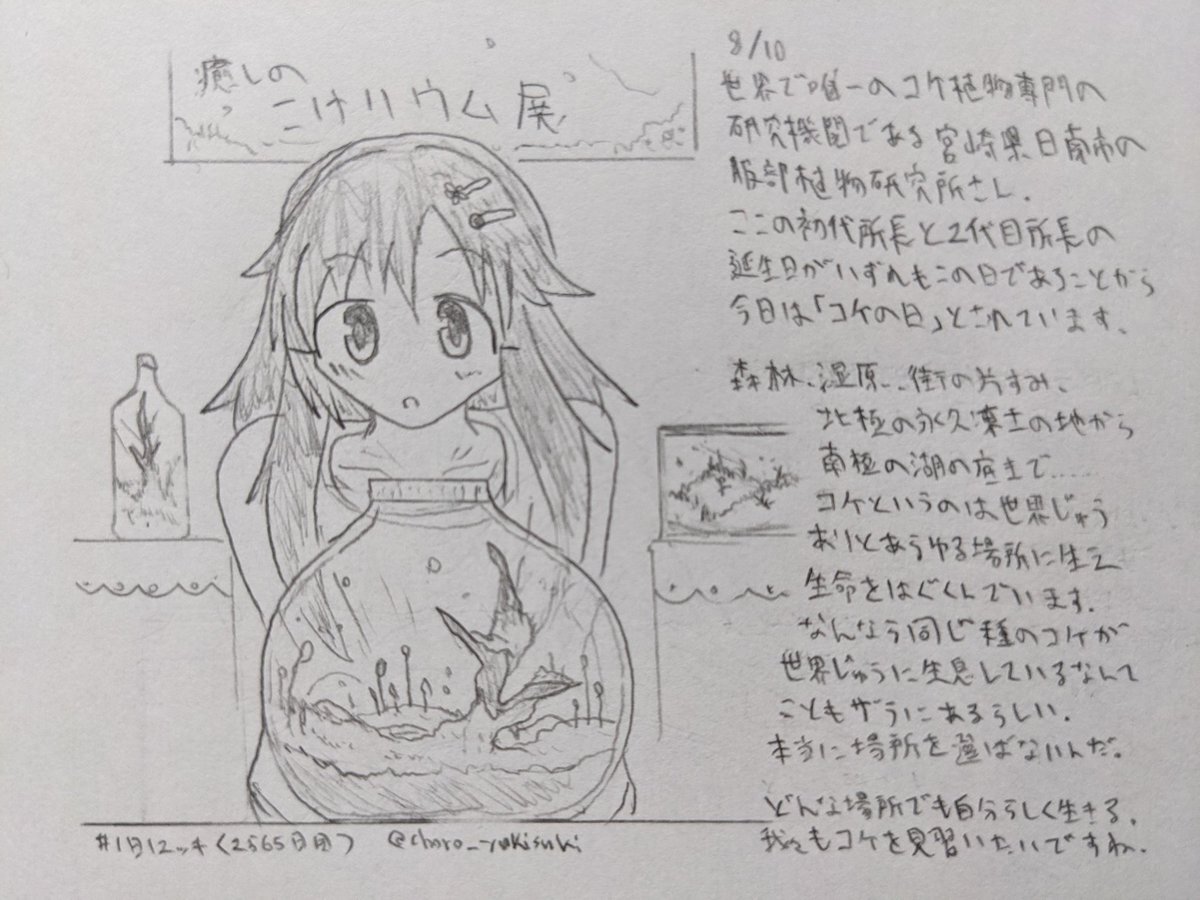 癒しの
こけリウム展
8/10
世界で唯一のコケ植物専門の
研究機関である宮崎県日南市の
服部植物研究所さん。
ここの初代所長と2代目所長の
誕生日がいずれもこの日であることから
今日は「コケの日」とされています。
森林、湿原、街の片すみ、
北極の永久凍土の地から
南極の湖の底まで……
コケというのは世界じゅう
ありとあらゆる場所に生え
生命をはぐくんでいます。
なんなら同じ種のコケが
世界じゅうに生息しているなんて
こともザラにあるらしい。
本当に場所を選ばないんだ。
どんな場所でも自分らしく生きる。
我々もコケを見習いたいですね。
#1日1Zッキ(2565日目) @choro_yukisuki